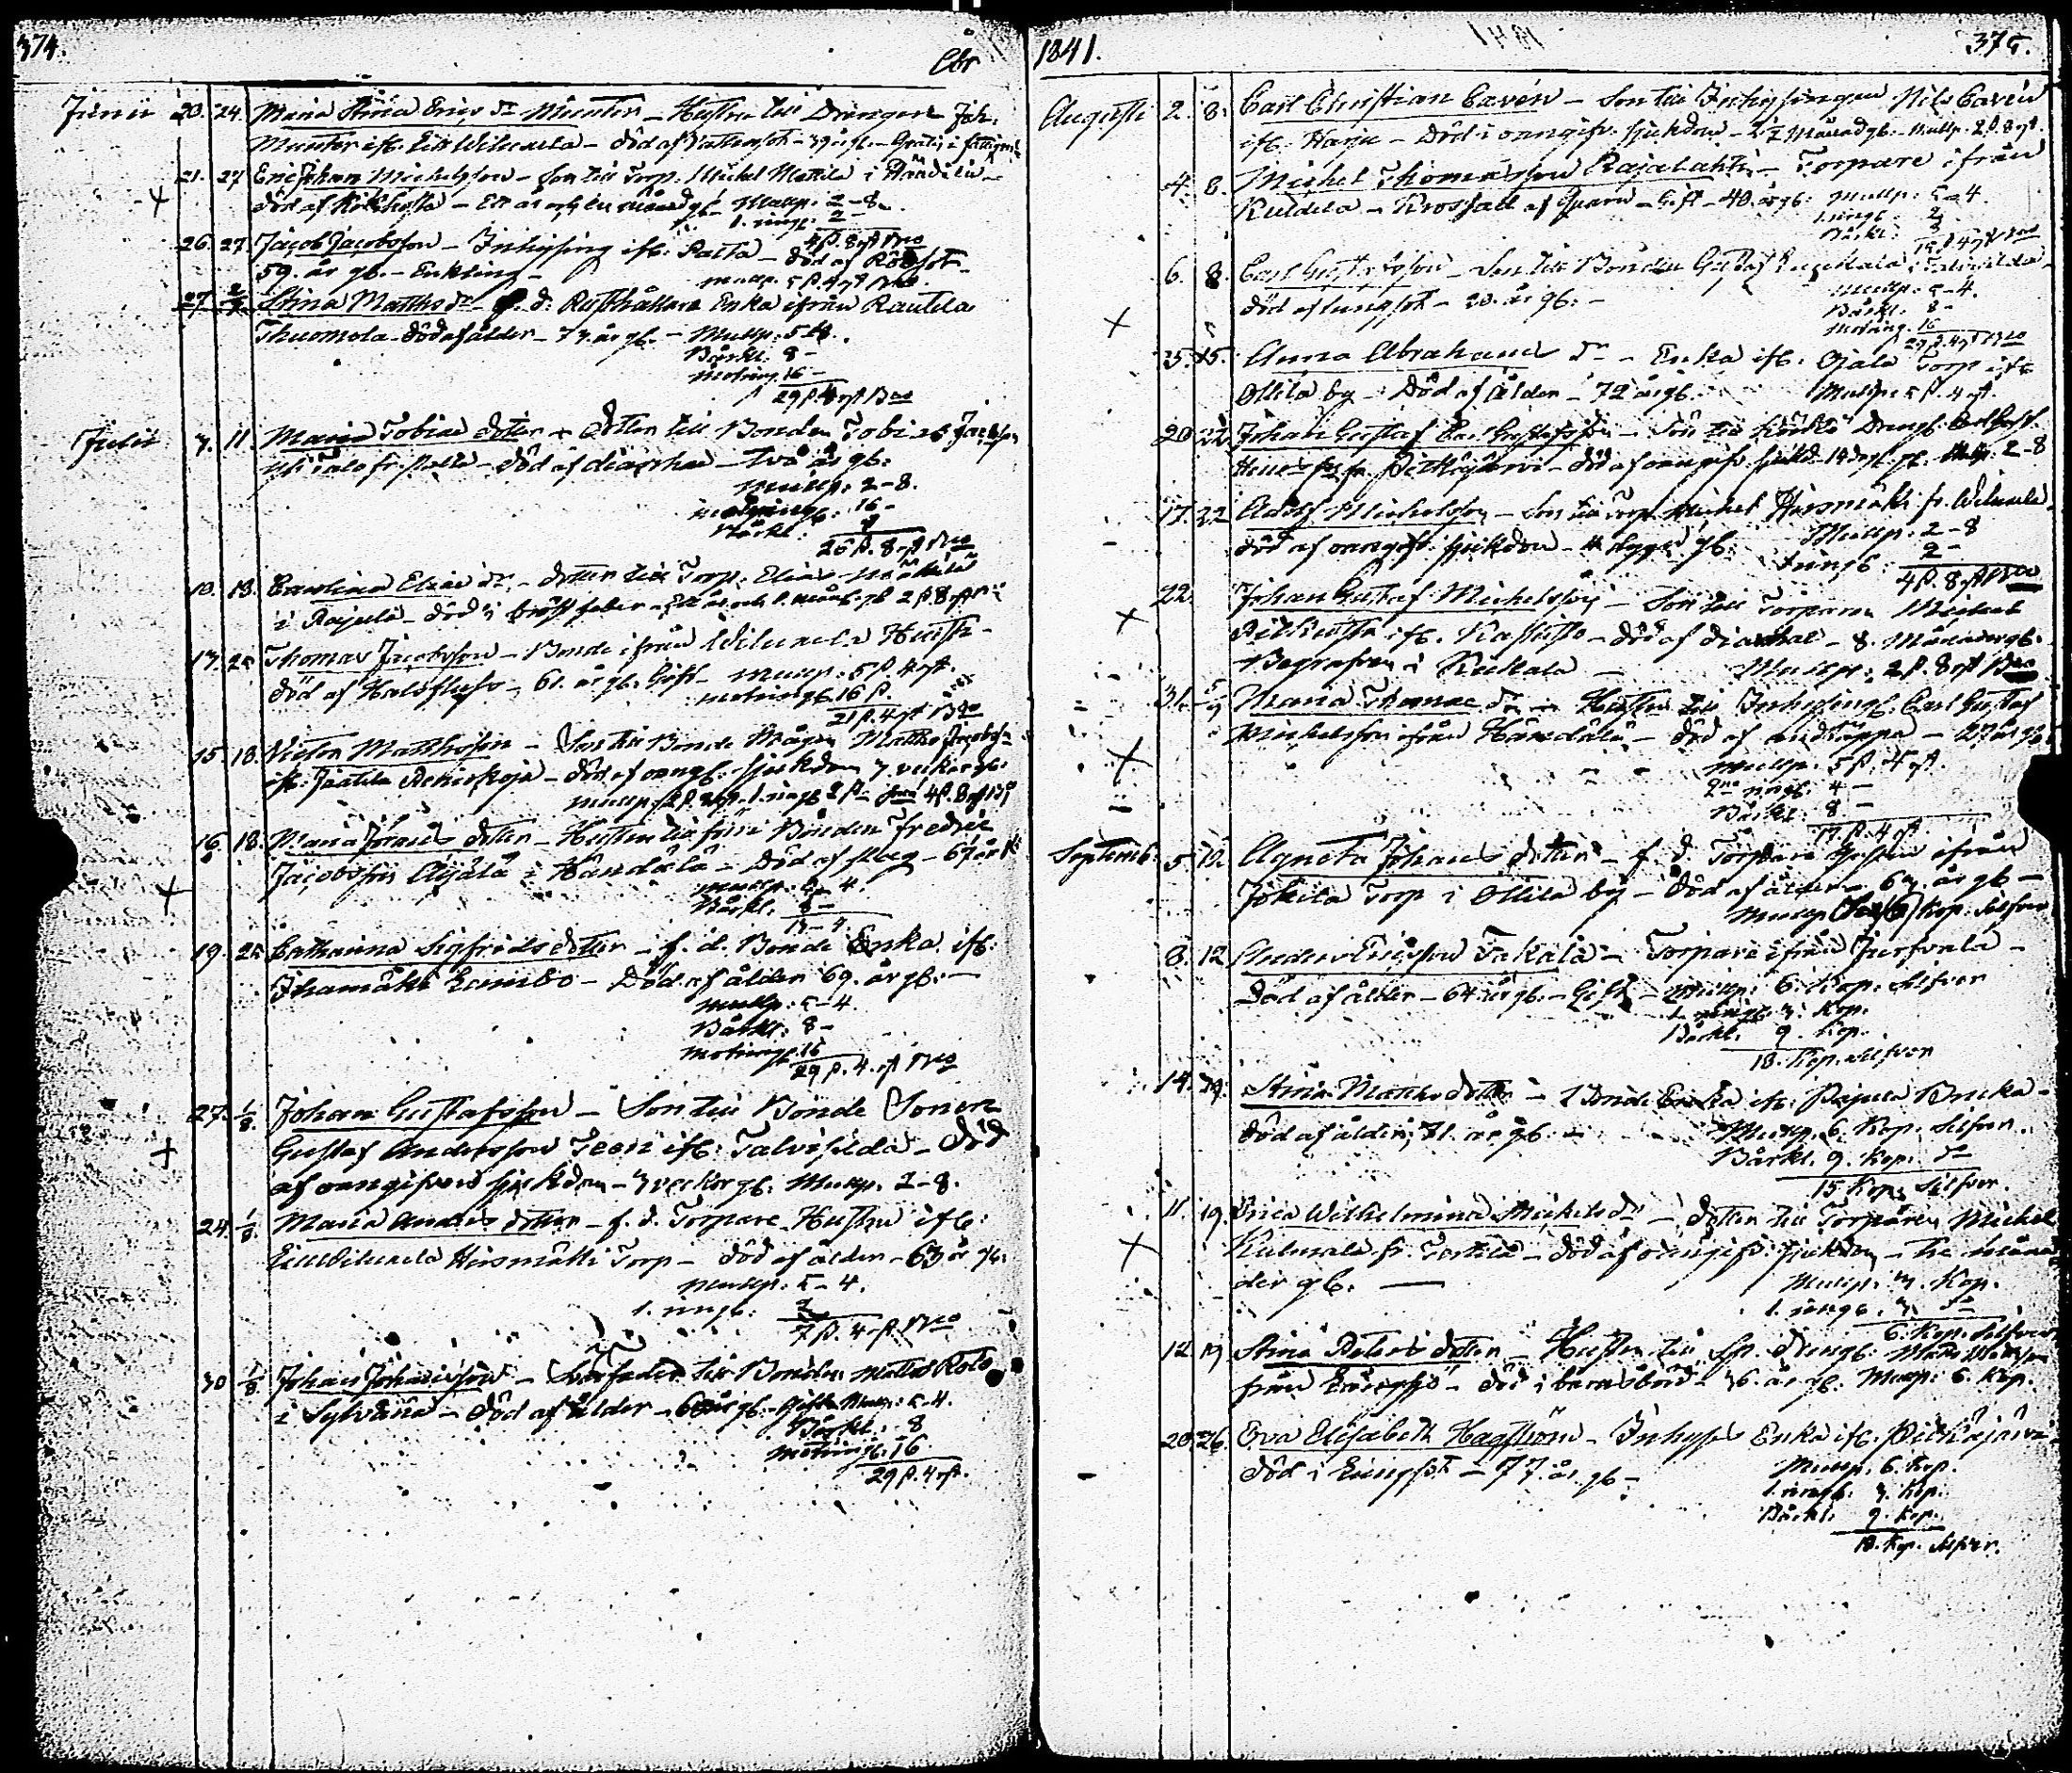 374.
År
Junii 20. 24. Maria Stina Erics dr Munter - Hustru till Drängen Joh.
Munter ifr. Lill Wiluxela - död af Vattusot - 39 år gl. - Gratis i fattigm
21. 27 Eric Johan Michelsson - Son till Torp. Michel Mattila i Händälä -
död af Kikhosta - Ett år och en månad gl. Mullp. 2-8.
1. ringg: 2-
4ß. 8rst Bco
26. 27. Jacob Jacobsson - Inhysing ifr. Palta - död af Rödsot -
59. år gl. - Enkling - mullp. 5ß 4rst Bco.
27. Stina Matths dr - f. d. Rusthållare Enka ifrån Rautela
Thuomola - död af ålder - 73. år gl. - Mullp: 5-4.
Bårkl. 8-
motring. 16-
29ß. 4rst Bco
Julii 7. 11. Maria Tobiae dotter - dotter till Bonden Tobias Jacobsson
- död af diarrhae - två år gl:
mullp: 2-8.
motringg: 16-
Bårkl: 8
26ß. 8rst Bco
10. 18. Carolina Eliae dr. - dotter till Torp. Elias Mäkilä
i Rajula - död i bröstfeber - Ett år och 1. mån. gl 2ß 8rst
13. 25 Thomas Jacobsson - Bonde ifrån Wiluxela Huisti -
död af Halsfluss - 61. år gl. Gift - mullp. 5ß. 4rst.
motringg 16ß.
21ß. 4rst Bco
15 18. Victor Matthsson - Son till Bonde Mågen Matths Jacobsn
ifr. Jaatila - död af oangf. sjukdom 7. veckor gl.
mullp. 2ß. 8rst. 1. ringg 2ß - 4ß. 8rst
16. 18. Maria Johans dotter - Hustru till förre Bonden Fredric
Jacobsson Äijälä i Händälä - död af slag - 67 år
mullp. 5-4.
Bårkl. 8-
13-4
19. 25 Catharina Sigfrids dotter - f. d. Bonde Enka ifr.
Ihamäki - Död af ålder 69. år gl. -
mullp. 5-4.
Bårkl: 8-
motringg. 16
29ß. 4. rst Bco
27. 1/8. Johan Gustafsson - Son till Bonde Sonen
Gustaf Andersson Teeri ifr. Talvisilda - död
af oangifven sjukdom - 3 veckor gl. Mullp. 2-8.
24. 1/8. Maria Anders dotter - f. d. Torpare Hustru ifr:
Lillwiluxela Hirsmäki Torp - död af ålder - 63 år gl.
mullp: 5-4.
1. ringg: 2
7ß. 4rst. Bco
30 1/8. Johan Johansson - Svärfader till Bonden Matts
i Sylvänä - död af ålder - år gl. - gift. Mullp. 5-4.
Bårkl: 8
motringg. 16.
29ß. 4rst.
1841.
375.
Augusti 2. 8. Carl Christian Cavén - Son till Inhysingen Nils Cavén
ifr. Harju - Död i oangifv. sjukdom - 2 1/2 Månad gl. - Mullp. 2ß. 8rst.
4. 8. Michel Thomasson Rajalahti - Torpare ifrån
Kuldela - Krossad af Qvarn - Gift - 40. år gl. Mullp. 5-4
1. ringg. 2
Bårkl: 8
15ß 4rst Bco
6. 8. Carl Gustafsson - Son till Bonden Gustaf i Talvisilda -
död af lungsot - 20. år gl: - mullp. 5-4.
Bårkl. 8-
motring. 16
29ß. 4rst Bco
15. Anna Abrahams dr - Enka ifr. Ojala Torp ifr
Ollila by - Död af ålder - 72 år gl. Mullp. 5ß. 4rst.
20 22. Johan Gustaf Carl Gustafsson - Son till Drengen Carl Gust.
fr. Pitkäjärvi - död af oangifv. sjukd. 14 dyg. gl. Mullp. 2-8
17. 22 Adolf Michelsson - Son till Torp. Michel Hirsmäki fr. Wiluxela
död af oangifv. sjukdom - 4 dygn gl. Mullp. 2-8
1 ringg: 2-
4ß. 8rst Bco
22. Johan Gustaf Michelsson - Son till Torparen Michel
ifr. - död af diarrhae - 8. Månader gl.
Begrafven i Kiikala - Mullp. 2ß. 8rst Bco
31. 5/9 Maria Thomae dr - Hustru till Inhysing. Carl Gustaf
Michelsson ifrån Händälä - död af andtäppa - år gl.
mullp. 5ß. 4rst.
2ne ringg: 4-
Bårkl: 8-
17ß. 4rst.
Septemb. 5. 12. Agneta Johans dotter - f. d. Torpare ifrån
Jokila Torp i Ollila by - död af ålder - 63. år gl -
mullp (Sex/6) Kop. Silfver
8. 12 Anders Ericsson Takala - Torpare ifrån
Död af ålder - 64 år gl. - Gift - mullp: 6. Kop. Silfver
1. ringg: 3. Kop.
Bårkl. 9. Kop.
18. Kop. Silfver
14. 19. Stina Matths dotter - Bonde Enka ifr. Rajula
död af ålder, 71. år gl. - Mullp. 6. Kop. Silfver.
Bårkl. 9. Kop. dr
15 Kop. Silfver.
11. 19. Erica Wilhelmina Michels dr - dotter till Torparen Michel
Kulmala fr. - död af oangifv. sjukdom - tre måna
der gl. — mullp. 3. Kop.
1. ringg. 3. dr
6. Kop. Silfver
12. 19 Stina Peters dotter - Hustru till Sp. dreng.
från - död i barnsbörd - 36. år gl. Mullp. 6. Kop.
20. 26. Eva Elisabeth Hagström - Inhyses Enka ifr. Pitkäjärvi
död i Lungsot - 77. år. gl - Mullp. 6. Kop.
1. ringg: 3. Kop.
Bårkl. 9. Kop.
18. Kop. Silfver.